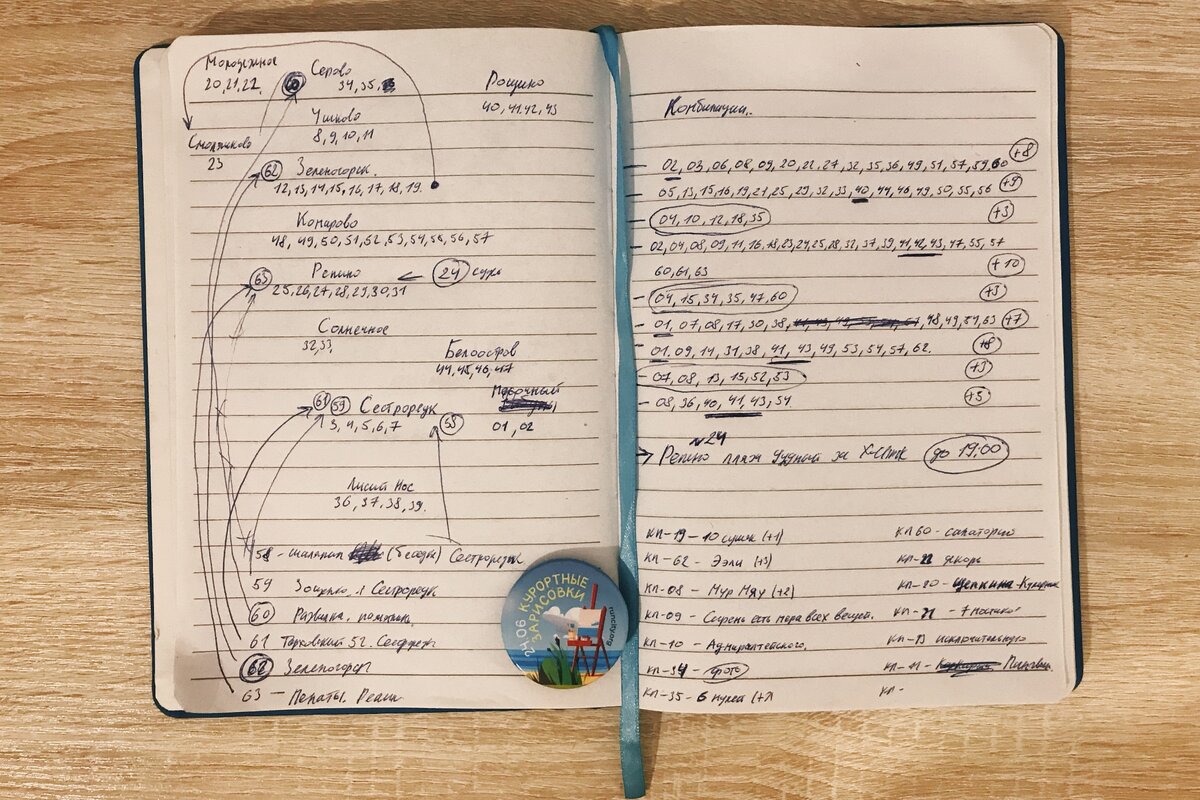 Молодёжное
20,21,22,
60
Серово
34,35,
Рощино
40,41,42,43
Ушково
8,9,10,11
Смолячково
23
62 Зеленогорск.
12,13,14,15,16,17,18,19.
Комарово
48, 49,50,51,52,53,54,55,56,57
63 Репино
24
25,26,27,28,29,30,31
Солнечное
32,33,
Белоостров
44,45,46,47
61 59 Сестрорецк
3,4,5,6,7
58
01,02
Лисий Нос
36,37,38,39.
58 - шалаш (беседк) Сестрорецк
59 Зощенко, Сестрорецк
60
61 Тарховский 52. Сестрорецк
62 Зеленогорск
63 — Пенаты. Репин.
24.06 КУРОРТНЫЕ ЗАРИСОВКИ
runcity.org
Комбинации.
- 02,03,06,08,09,20,22,27,32,35,36,49,51,57,59,60 +8
- 05,13,15,16,19,21,25,29,32,33,40,44,46,49,50,55,56 +9
- 04,10,12,18,35 +3
- 02,04,08,09,11,16,18,23,24,25,28,32,37,39,41,42,43,47,55,57
60,61,63 +10
- 04,15,34,35,47,60 +3
- 01,07,08,17,30,38, 48,49,54,63 +7
- 01,09,14,31,38,41,43,49,53,54,57,62. +8
- 07,08,13,15,52,53 +3
- 08,36,40,41,43,54 +5
№24
Репино пляж за до 19:00
КП-19 - 10 (+1)
КП-62 - Ээли (+3)
КП-08 - Мур Мяу (+2)
КП-09 - Сирень есть мера всех вещей.
КП-10 - Адмиралтейского.
КП-34 - фото
КП-35 - 6 (+2)
КП 60 - санаторий
КП-22 якорь
КП-20 - Щепкина
КП-21 -
КП-13 исключительную
КП-11 -
КП -